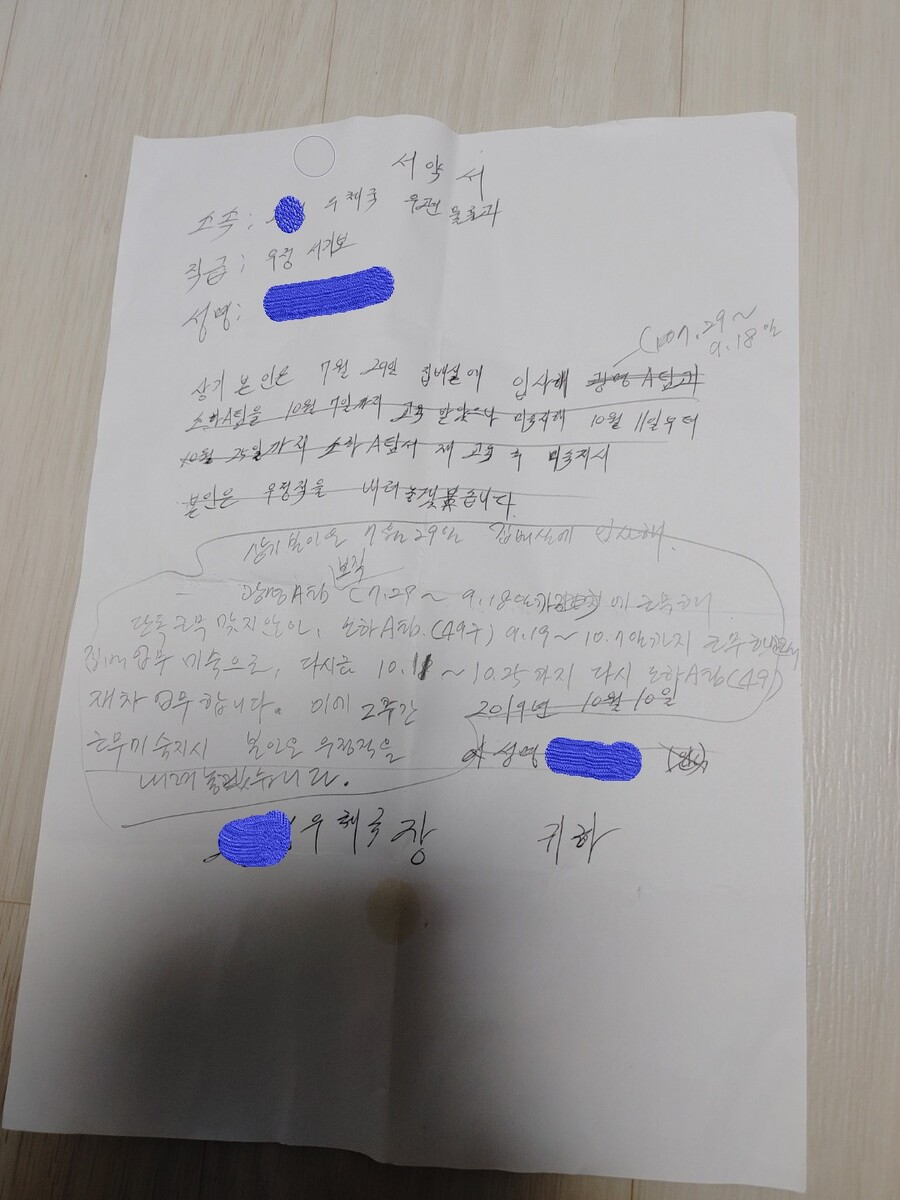 서약서
소속: 우체국 우편물류과
직급: 우정 서기보
성명:
(7.29~
9.18일
상기 본인은 7월 29일 집배실에 입사해 광명 A팀과
소하A팀을 10월 7일까지 교육 받았으나 미숙지해 10월 11일부터
10월 25일까지 소하 A팀서 재 교육 후 미숙지시
본인은 우정직을 내려 놓겠습니다.
상기 본인은 7월 29일 집배실에 입사해.
보직
광명A팀 (7.29~ 9.18일까지)에 근무하니
단독근무 맞지않아, 소하A팀.(49구) 9.19~10.7일까지 근무하였으나
집배업무 미숙으로, 다시금 10.11~10.25까지 다시 소하A팀(49)
재차 업무합니다. 이에 2주간
2019년 10월 10일
근무미숙지시 본인은 우정직을
성명 (인)
내려놓겠습니다.
우체국장 귀하